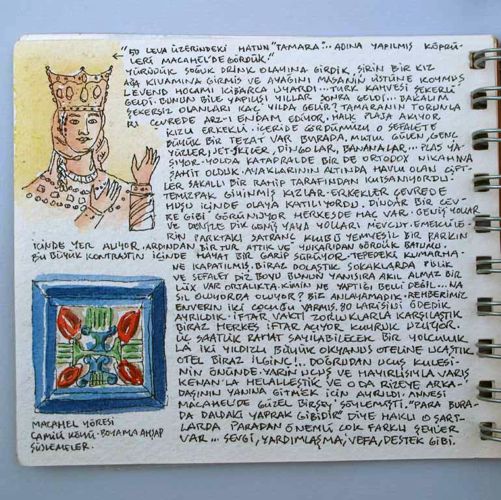 "50 LEVA ÜZERİNDEKİ HATUN "TAMARA"... ADINA YAPILMIŞ KÖPRÜ-
LERİ MACAHEL'DE GÖRDÜK."
YÜRÜYÜK SOĞUK DRİNK OLAYINA GİRDİK, ŞİRİN BİR KIZ
AĞA KIVAMINA GİRMİŞ VE AYAĞINI MASANIN ÜSTÜNE KOYMUŞ
LEVEND HOCAMI KİBARCA UYARDI... TÜRK KAHVESİ ŞEKERLİ
GELDİ. BUNUN BİLE YAPILIŞI YILLAR SONRA GELDİ... BAKALIM
ŞEKERSİZ OLANLARI KAÇ YILDA GELİR? TAMARANIN TORUNLA
RI ÇEVREDE ARZ-I ENDAM EDİYOR. HALK PLAJA AKIYOR
KIZLI ERKEKLİ. İÇERİDE GÖRDÜĞÜMÜZ O SEFALETE
BÜYÜK BİR TEZAT VAR BURADA, MUTLU GÜLEN, GENÇ
YÜZLER, JET-SKİLER, DİNGOLAR, BANANALAR... PLAS YA-
ŞIYOR. YOLDA KATADRALDE BİR DE ORTODOX NİKAHINA
ŞAHİT OLDUK. AYAKLARININ ALTINDA HAVLU OLAN ÇİFT-
LER SAKALLI BİR RAHİP TARAFINDAN KUTSANIYORDU.
TEMİZPAK GİYİNMİŞ KIZLAR-ERKEKLER ÇEVREDE
HUŞU İÇİNDE OLAYA KATILIYORDU. DİNDAR BİR ÇEV-
RE GİBİ GÖRÜNÜYOR HERKESDE HAÇ VAR. GENİŞ YOLLAR
VE DENİZE DİK GENİŞ YAYA YOLLARI MEVCUT. EMEKLİLE-
RİN PARKTAKİ SATRANÇ KLUBÜ YEMYEŞİL BİR PARKIN
İÇİNDE YER ALIYOR. ARDINDAN BİR TUR ATTIK VE YUKARIDAN GÖRDÜK BATUMU.
BU BÜYÜK KONTRASTIN İÇİNDE HAYAT BİR GARİP SÜRÜYOR. TEPEDEKİ KUMARHA-
NE KAPATILMIŞ. BİRAZ DOLAŞTIK SOKAKLARDA PİSLİK
VE SEFALET DİZ BOYU BUNUN YANISIRA AKIL ALMAZ BİR
LÜX VAR ORTALIKTA. KİMİN NE YAPTIĞI BELLİ DEĞİL... NA
SIL OLUYORDA OLUYOR? BİR ANLAYAMADIK. REHBERİMİZ
ENVERİN İKİ ÇOCUĞU VARMIŞ. 80 LARİSİNİ ÖDEDİK
AYRILDIK. İFTAR VAKTİ ZORLUKLARLA KARŞILAŞTIK
BİRAZ HERKES İFTAR AÇIYOR KUYRUK UZUYOR.
ÜÇ SAATLİK RAHAT SAYILABİLECEK BİR YOLCULUK
LA İKİ YILDIZLI BÜYÜK OKYANUS OTELİNE UÇAŞTIK.
OTEL BİRAZ İLGİNÇ!.. DOĞRUDAN UÇUŞ KULESİ-
NİN ÖNÜNDE. YARIN UÇUŞ VE HAYIRLISIYLA VARIŞ
KENAN'LA HELALLEŞTİK VE O DA RİZEYE ARKA-
DAŞININ YANINA GİTMEK İÇİN AYRILDI. ANNESİ
MACAHEL'DE GÜZEL BİRŞEY SÖYLEMİŞTİ. "PARA BURA-
DA DALDAKİ YAPRAK GİBİDİR" DİYE HAKLI O ŞART-
LARDA PARADAN ÖNEMLİ ÇOK FARKLI ŞEYLER
VAR... SEVGİ, YARDIMLAŞMA, VEFA, DESTEK GİBİ.
MACAHEL YÖRESİ
CAMİLİ KÖYÜ-BOYAMA AHŞAP
SÜSLEMELER.